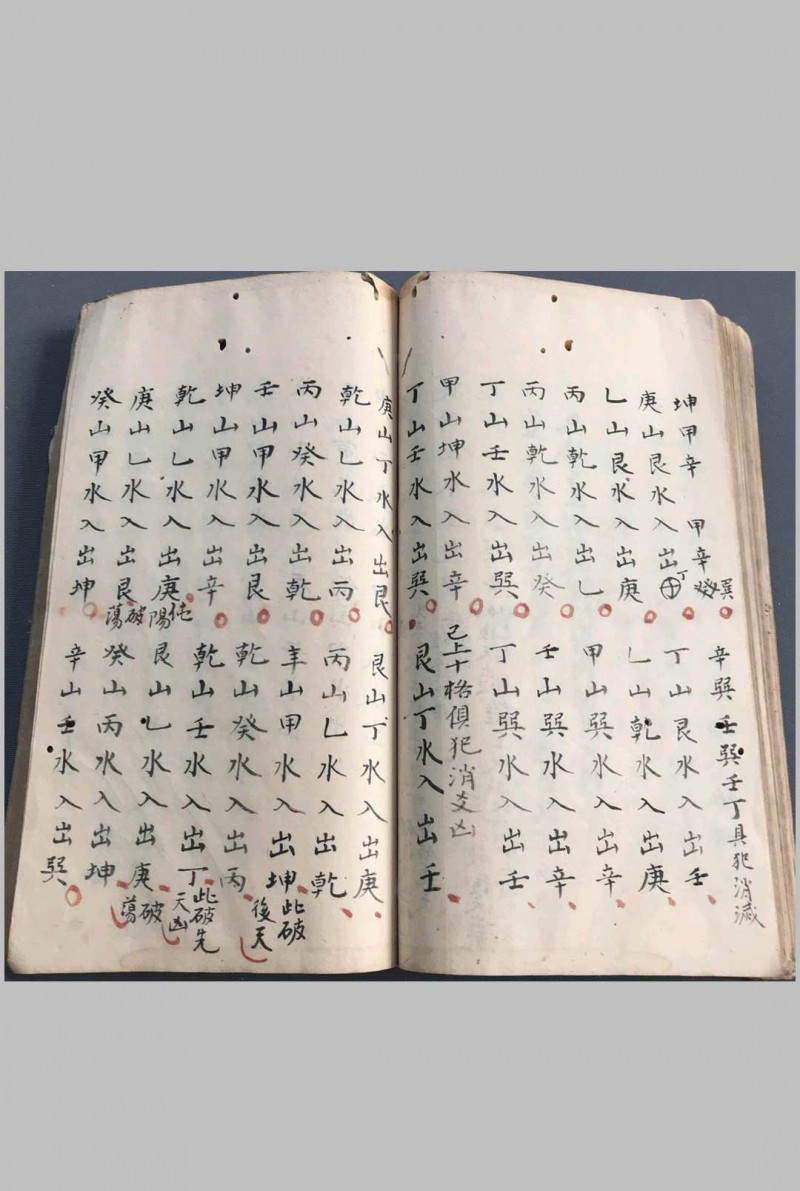 坤甲辛 甲辛癸巽
辛巽壬巽壬丁具犯消滅
庚山艮水入出丁
丁山艮水入出壬
乙山艮水入出庚
乙山乾水入出庚
丙山乾水入出乙
甲山巽水入出辛
丙山乾水入出癸
壬山巽水入出辛
丁山壬水入出巽
丁山巽水入出壬
甲山坤水入出辛
已上十格俱犯消爻凶
丁山壬水入出巽
艮山丁水入出壬
庚山丁水入出艮
艮山丁水入出庚
乾山乙水入出丙
丙山乙水入出乾
丙山癸水入出乾
羊山甲水入出坤
此破後天
壬山甲水入出艮
乾山癸水入出丙
坤山甲水入出辛
乾山壬水入出丁
此破先天凶
乾山乙水入出庚
陽
艮山乙水入出庚
破蕩
庚山乙水入出艮
破蕩
癸山丙水入出坤
癸山甲水入出坤
辛山壬水入出巽